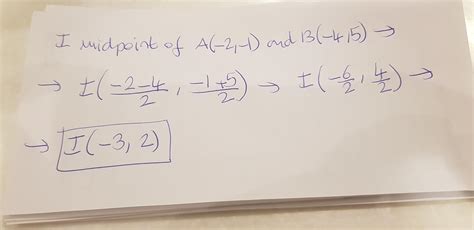 I midpoint of A(-2,-1) and B(-4,5) →
→ I(\frac{-2-4}{2}, \frac{-1+5}{2}) → I(-\frac{6}{2}, \frac{4}{2}) →
→ I(-3, 2)